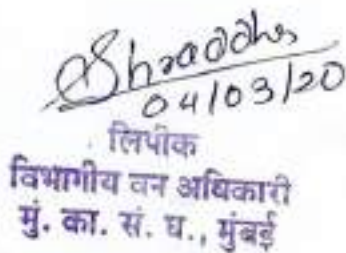 Shraddha
04/03/20
लिपीक
विभागीय वन अधिकारी
मुं. का. सं. घ., मुंबई